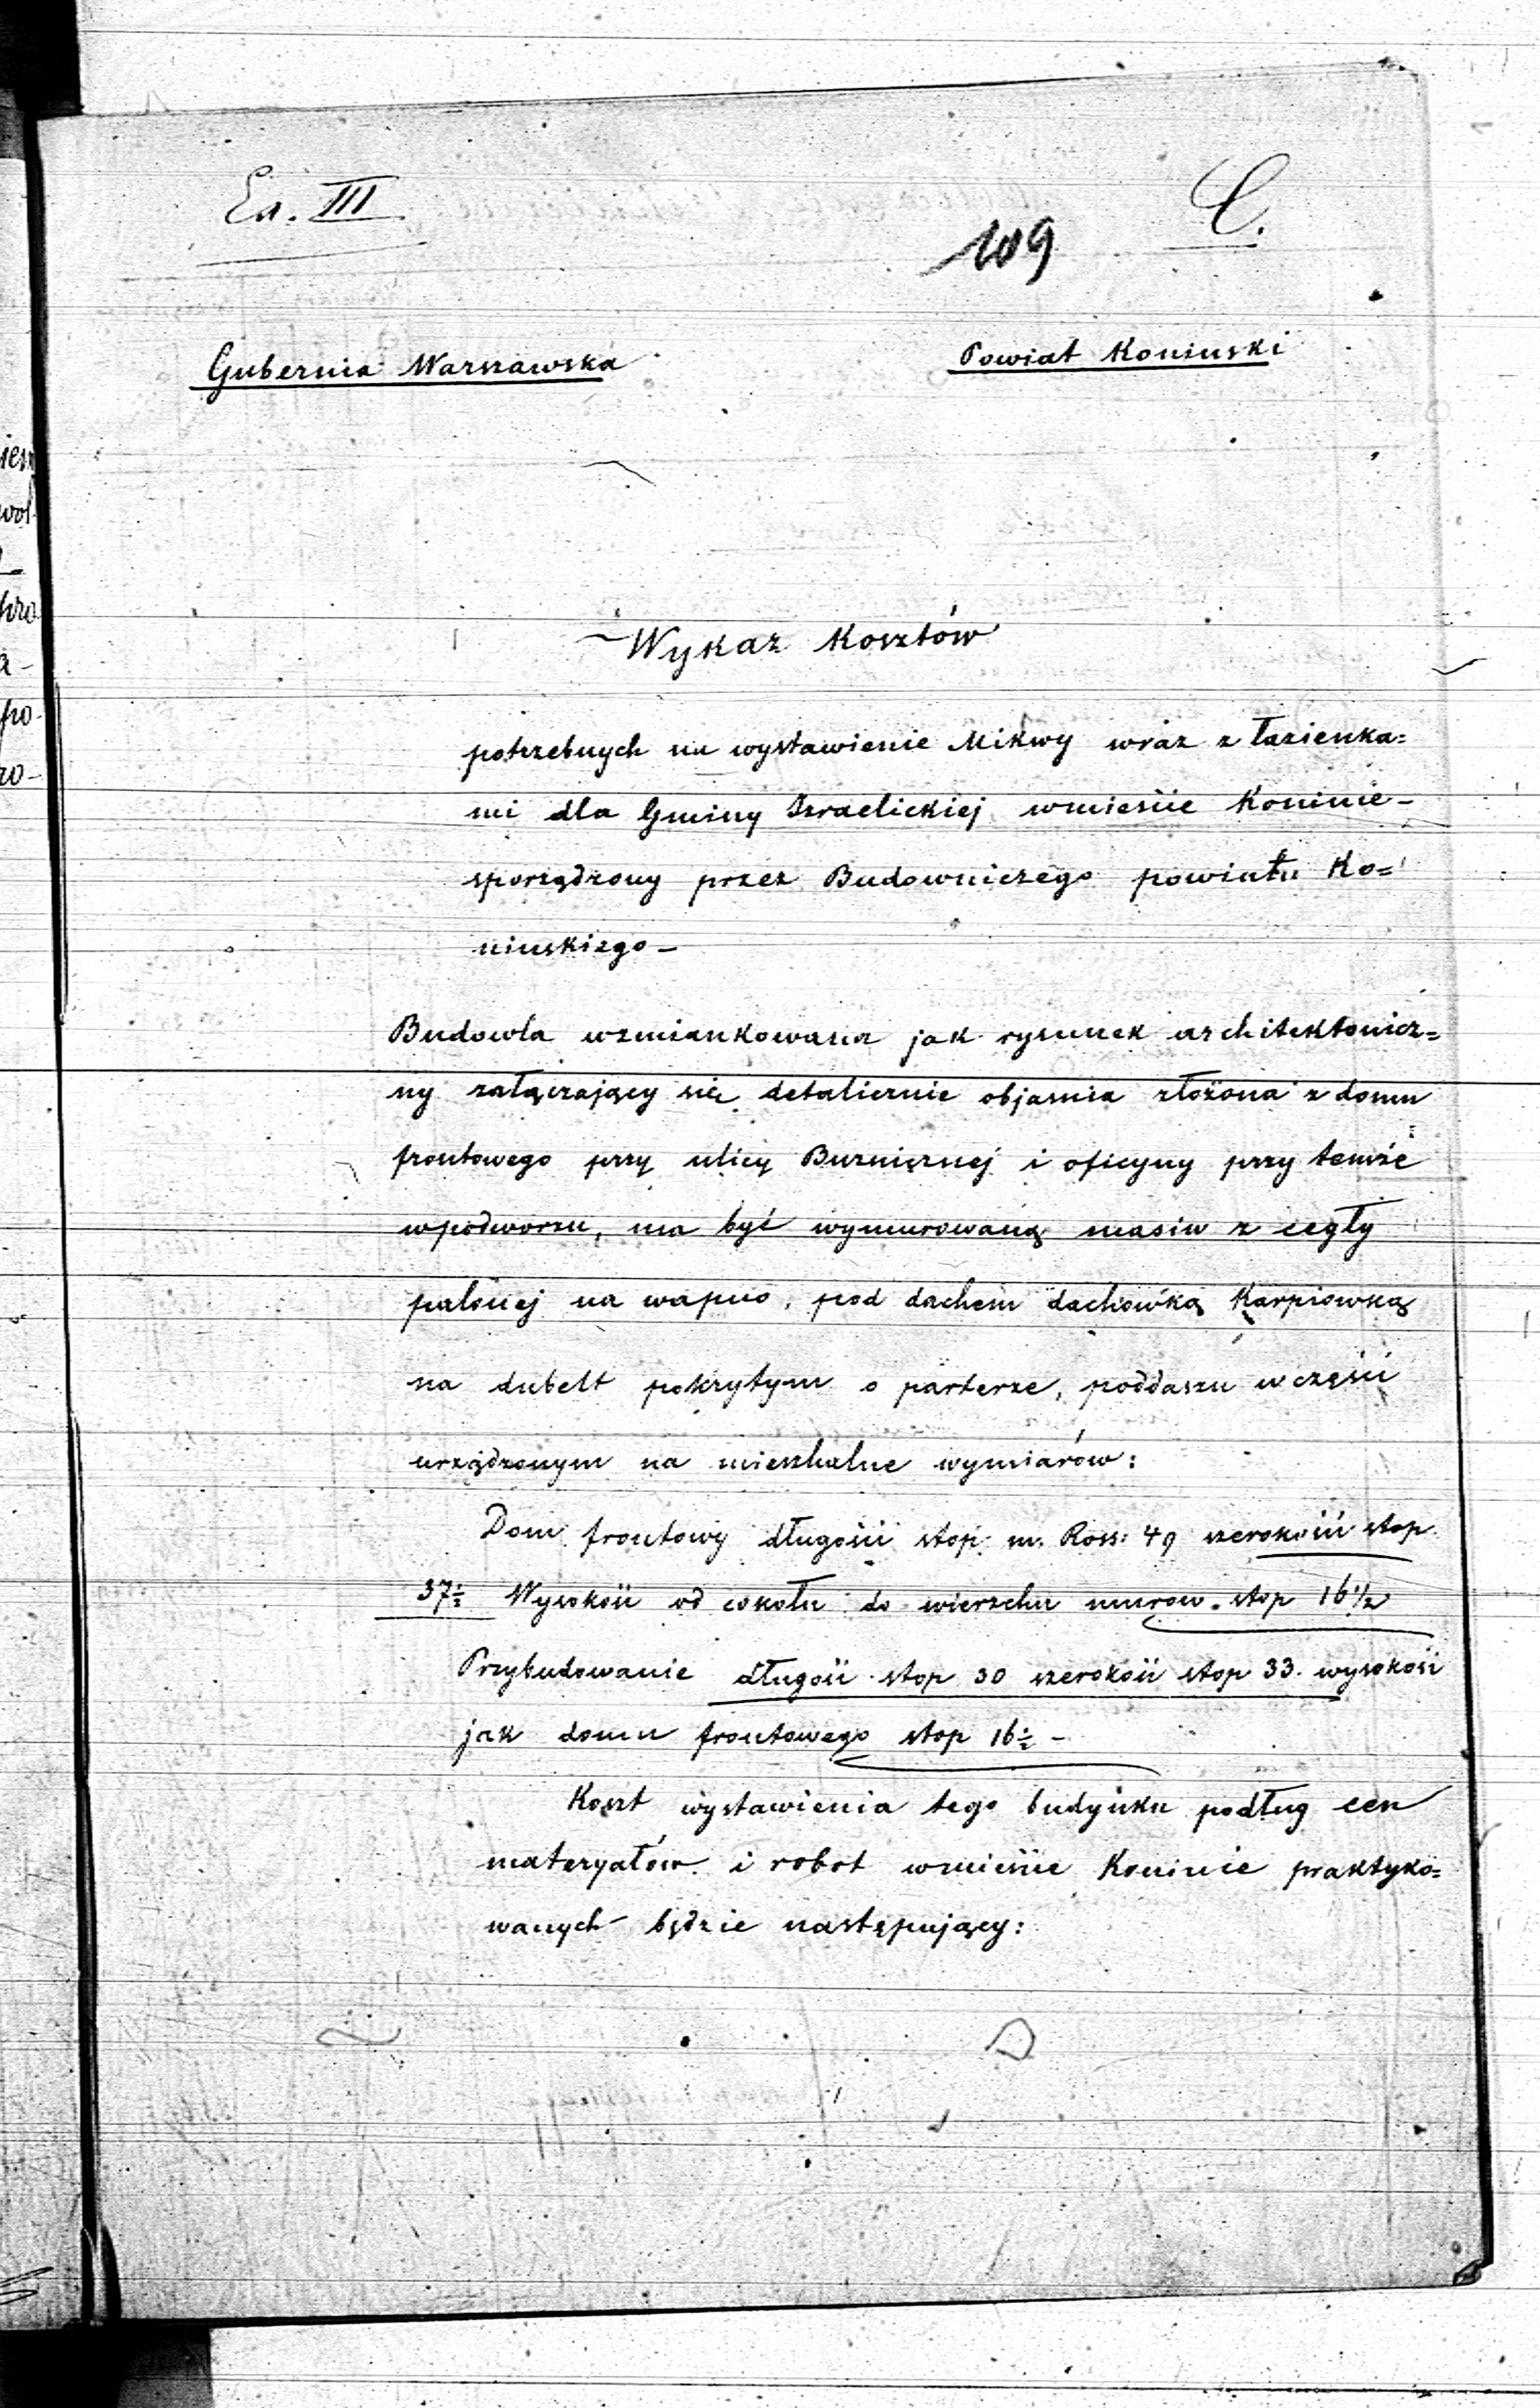 Ea. III
C.
109
Gubernia Warszawska
Powiat Koniński
Wykaz Kosztów
potrzebnych na wystawienie Mikwy wraz z łazienka=
mi dla Gminy Izraelickiej wmieście Koninie –
sporządzony przez Budowniczego powiatu Ko=
nińskiego –
Budowla wzmiankowana jak rysunek architektonicz=
ny załączający się detalicznie objasnia złożona z domu
frontowego przy ulicy Bużnicznej i oficyny przy temże
wpodworzu, ma być wymurowaną masiw z cegły
palonej na wapno, pod dachem dachówką Karpiowką
na dubelt pokrytym o parterze, poddaszu w części
urządzonym na mieszkalne wymiarów:
Dom frontowy długości stop m. Ross: 49 szerokości stop
37½ Wysokości od cokołu do wierzchu murow stop 16½
Przybudowanie długości stop 30 szerokości stop 33. wysokości
jak domu frontowego stop 16½ –
Koszt wystawienia tego budynku podług cen
materyałów i robot wmieście Koninie praktyko=
wanych będzie następujący: